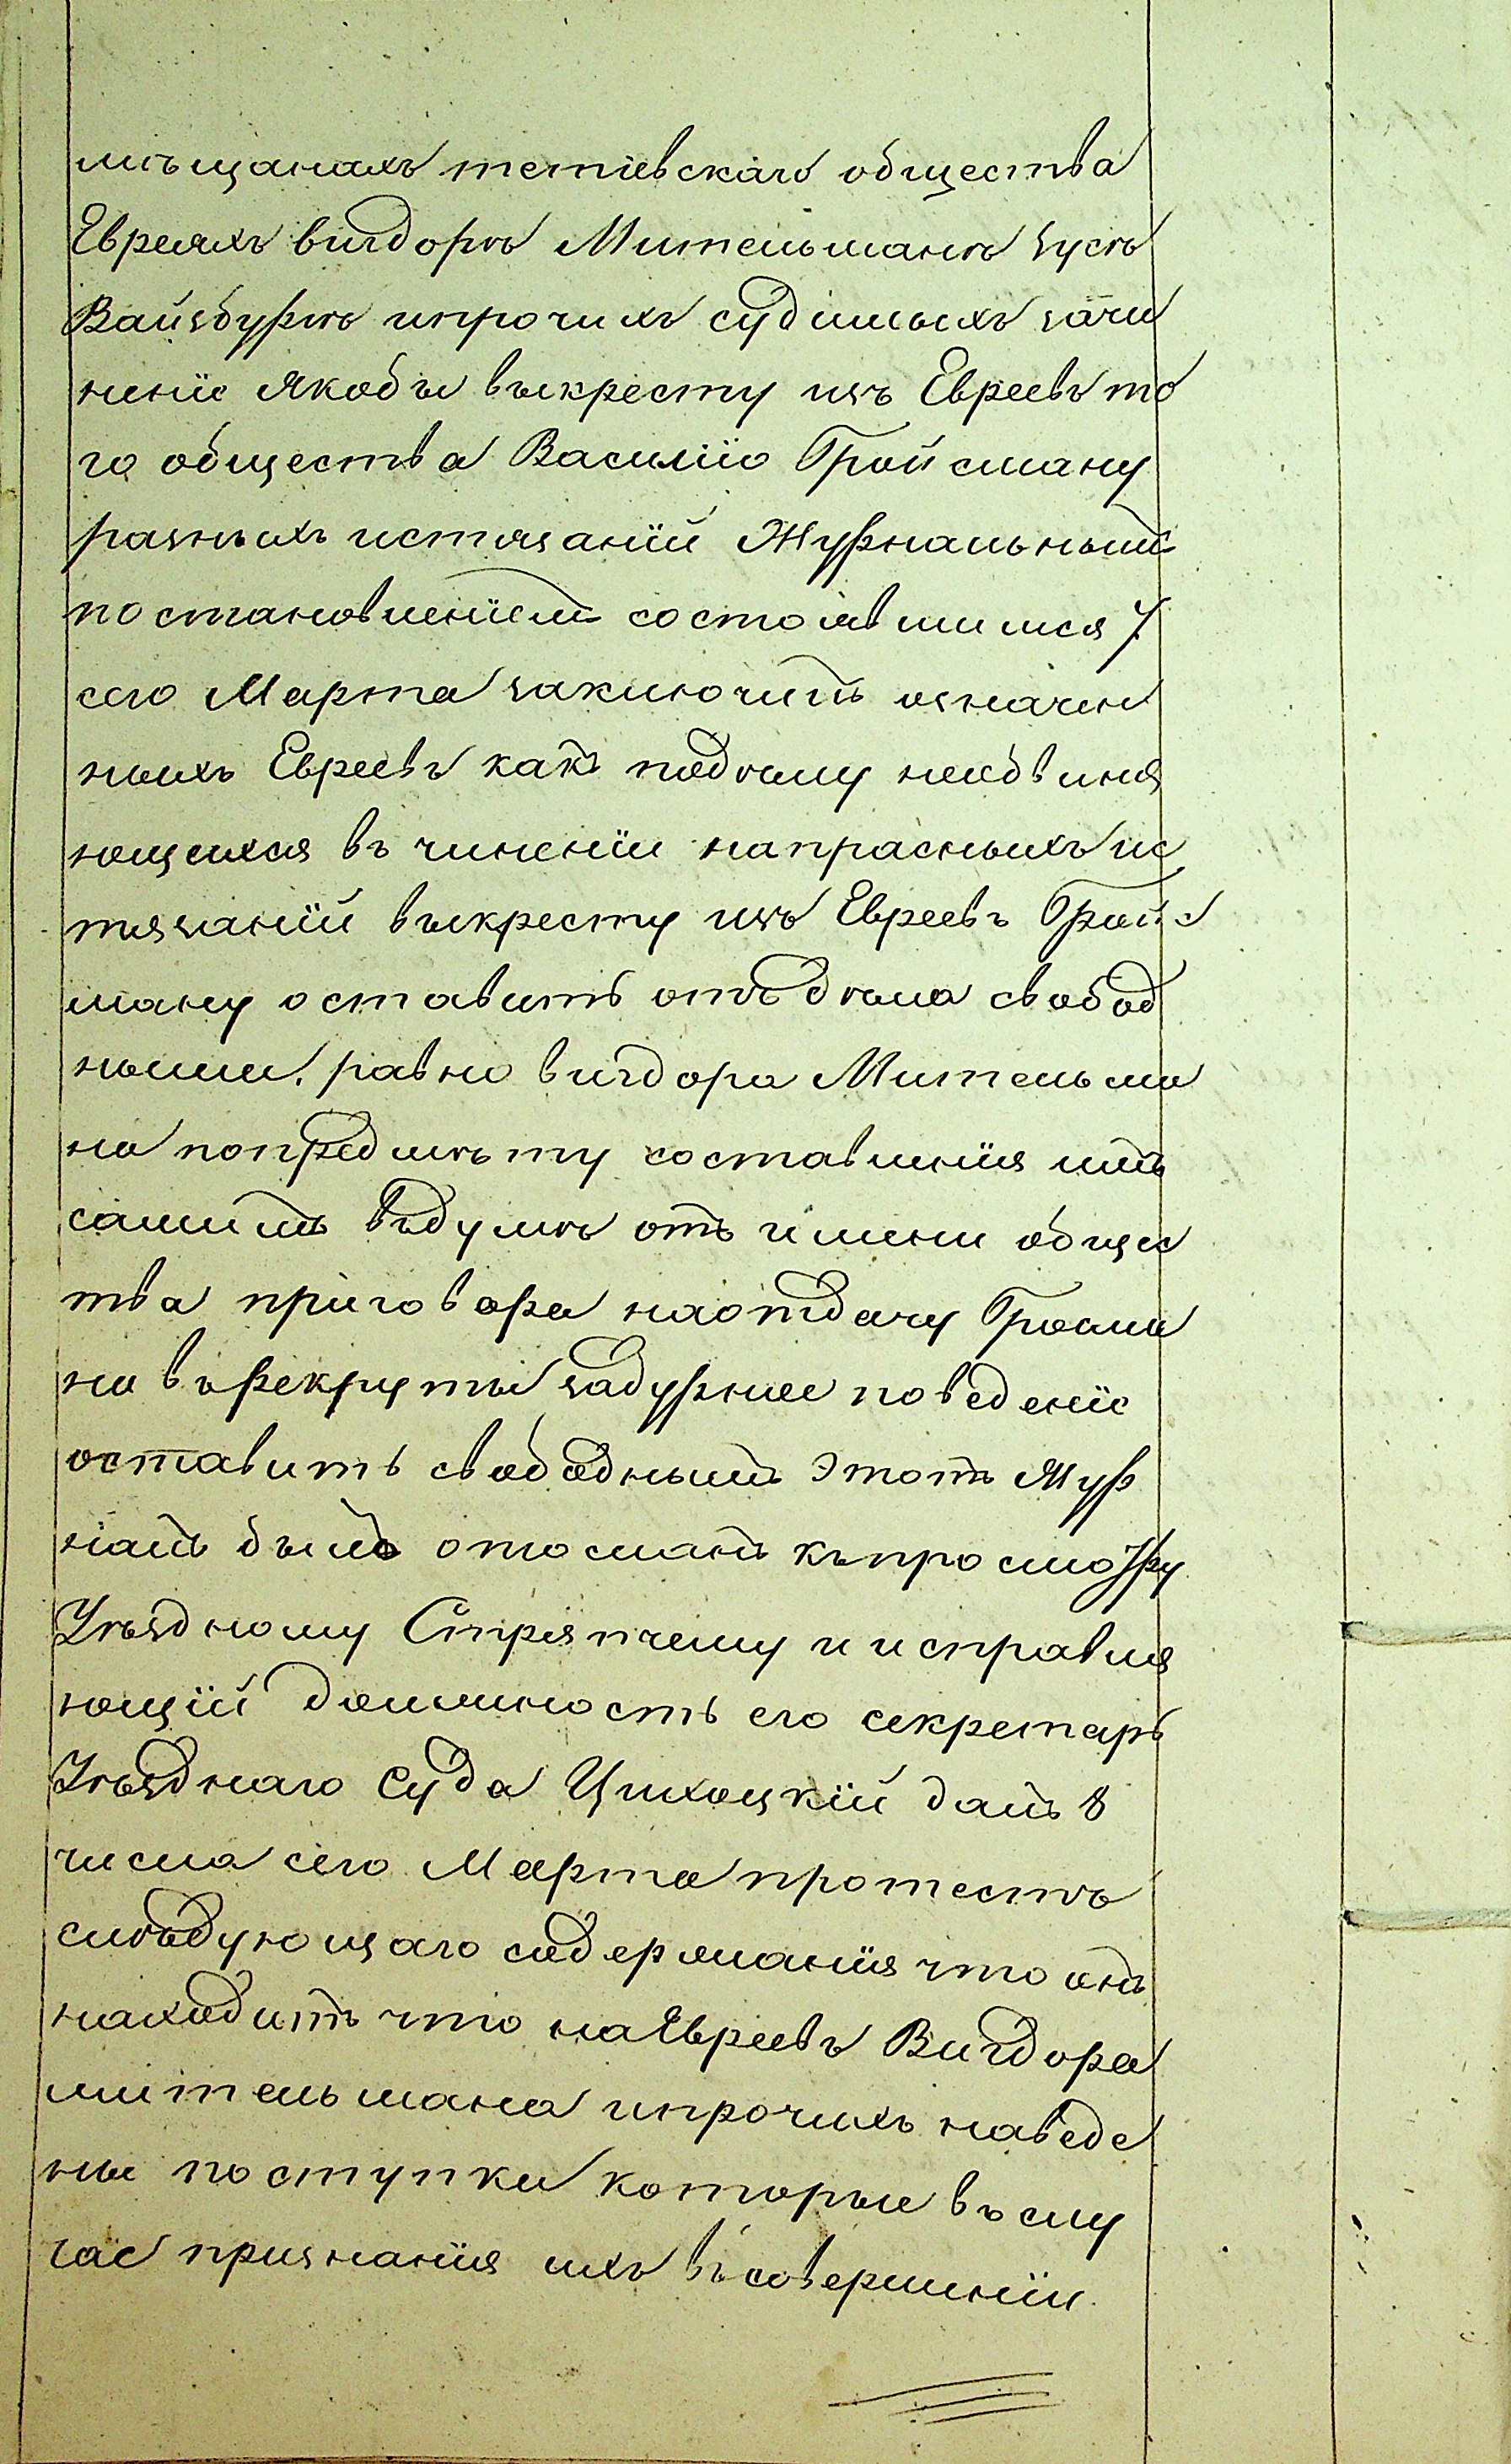 мѣщанахъ тетіевскаго общества
Евреяхъ вигдорѣ Мительманѣ зусѣ
Вайзбурѣ ипрочихъ судимыхъ зачи
неніе якобы выкресту изъ Евреевъ то
го общества Василію Гройсману
разныхъ истязаній Журнальнымъ
постановленіемъ состоявшимся 7
сего Марта заключитъ означен
ныхъ Евреевъ какъ подѣлу необвиня
ющихся въ чиненіи напрасныхъ ис
тязаній выкресту изъ Евреевъ Гройс
ману оставить отъ дѣла свобод
ными, равно вигдора Мительма
на попредмѣту составленія имъ
самимъ въдумѣ отъ имени общес
тва приговора наотдачу Гросма
на въ рекруты задурнее поведеніе
оставить свободнымъ этотъ Жур
налъ былъ отосланъ къпросмотру
Уѣздному Стряпчему и исправля
ющій должность его секретарь
Уѣзднаго Суда Цихоцкій далъ 8
числа сего Марта протестъ
слѣдующаго содержанія что онъ
находитъ что наЕвреевъ Вигдора
мительмана ипрочихъ наведе
ны поступки которые въ слу
чае признанія ихъ въ совершеніи